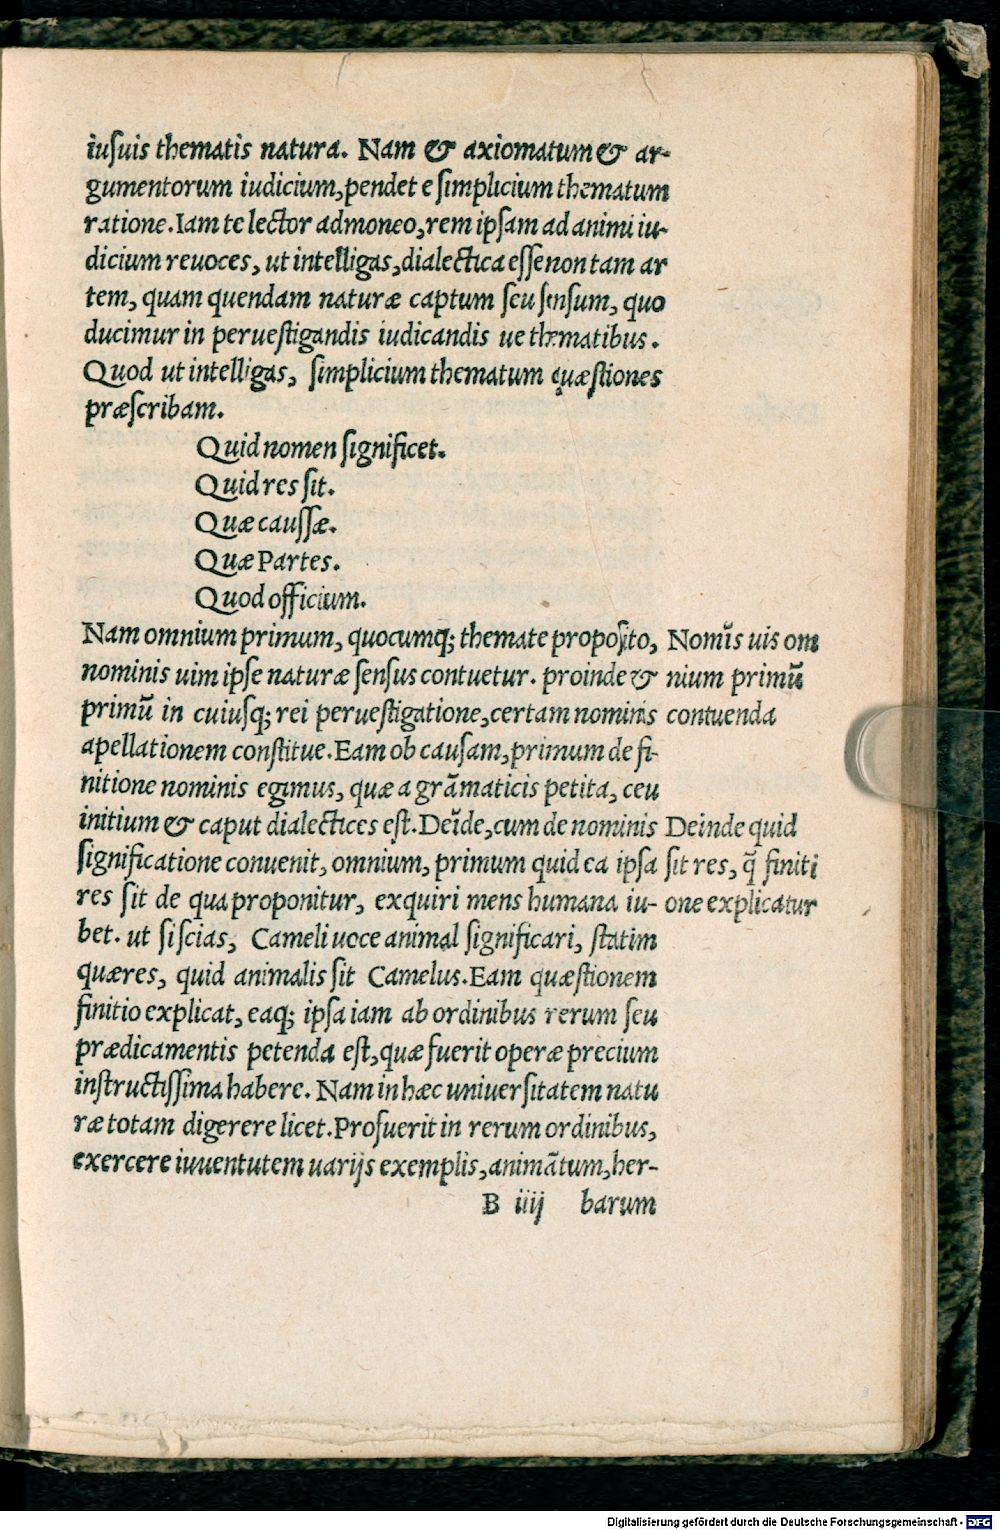 iusuis thematis natura. Nam & axiomatum & ar-
gumentorum iudicium, pendet e simplicium thematum
ratione. Iam te lector admoneo, rem ipsam ad animi iu-
dicium reuoces, ut intelligas, dialectica esse non tam ar
tem, quam quendam naturæ captum seu sensum, quo
ducimur in peruestigandis iudicandis ue thematibus.
Quod ut intelligas, simplicium thematum quæstiones
præscribam.
Quid nomen significet.
Quid res sit.
Quæ caussæ.
Quæ Partes.
Quod officium.
Nam omnium primum, quocumq; themate proposito,
nominis uim ipse naturæ sensus contuetur. proinde &
primū in cuiusq; rei peruestigatione, certam nominis
apellationem constitue. Eam ob causam, primum de fi-
nitione nominis egimus, quæ a grāmaticis petita, ceu
initium & caput dialectices est. Deīde, cum de nominis
significatione conuenit, omnium, primum quid ea ipsa
res sit de qua proponitur, exquiri mens humana iu-
bet. ut si scias, Cameli uoce animal significari, statim
quæres, quid animalis sit Camelus. Eam quæstionem
finitio explicat, eaq; ipsa iam ab ordinibus rerum seu
prædicamentis petenda est, quæ fuerit operæ precium
instructissima habere. Nam in hæc uniuersitatem natu
ræ totam digerere licet. Profuerit in rerum ordinibus,
exercere iuuentutem uarijs exemplis, animātum, her-
B iiij barum
Nomīs uis om
nium primū
contuenda
Deinde quid
sit res, q̄ finiti
one explicatur
Digitalisierung gefördert durch die Deutsche Forschungsgemeinschaft - DFG